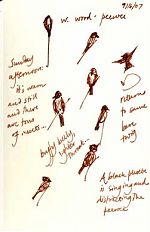 9/16/07
w. wood-peewee
Sunday
afternoon:
it's warm
and still
and there
are tons
of insects...
returns
to same
bare
twig
buffy belly,
whiter
throat
A black phoebe
is singing and
distracting the
peewee